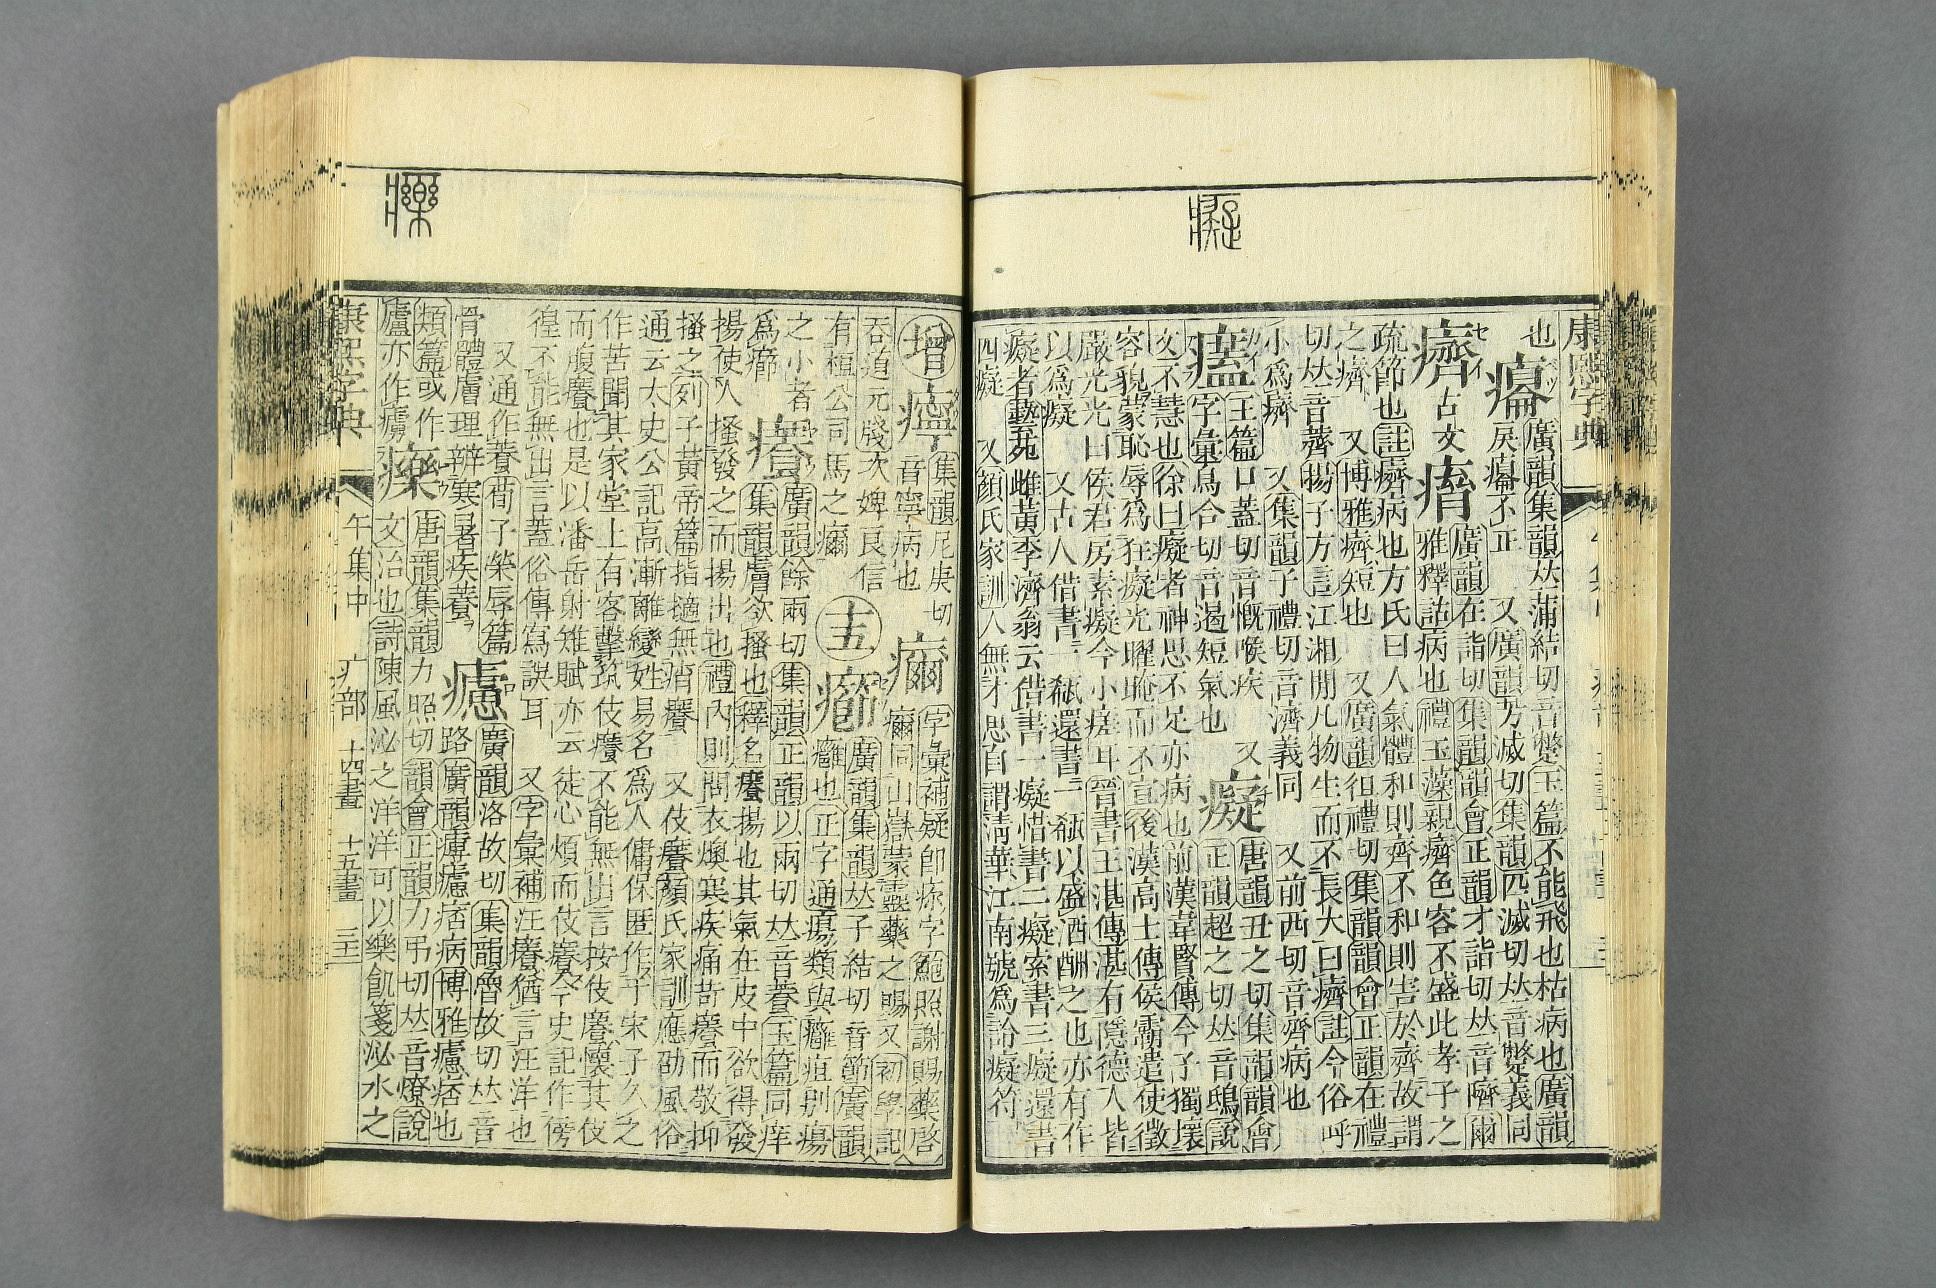 康熙字典
也 癟 廣韻集韻𠀤蒲結切音蹩玉篇不能飛也枯病也廣韻
戾癟不正 又廣韻芳滅切集韻匹滅切𠀤音蹩義同
癠 セイ 古文 㾕 廣韻在詣切集韻韻會正韻才詣切𠀤音嚌爾
雅釋詁病也禮玉藻親癠色容不盛此孝子之
疏節也註癠病也方氏曰人氣體和則齊不和則害於齊故謂
之癠 又博雅癠短也 又廣韻徂禮切集韻韻會正韻在禮
切𠀤音薺揚子方言江湘閒凡物生而不長大曰癠註今俗呼
小爲癠 又集韻子禮切音濟義同 又前西切音齊病也
玉篇口蓋切音慨喉疾 又 癡 唐韻丑之切集韻韻會
字彙烏合切音遏短氣也 正韻超之切𠀤音鴟說
文不慧也徐曰癡者神思不足亦病也前漢韋賢傳今子獨壞
容貌蒙恥辱爲狂癡光曜晻而不宣後漢高士傳侯霸遣使徵
嚴光光曰侯君房素癡今小瘥耳晉書王湛傳湛有隱德人皆
以爲癡 又古人借書一瓻還書一瓻以盛酒酬之也亦有作
癡者藝苑雌黃李濟翁云借書一癡惜書二癡索書三癡還書
四癡 又顏氏家訓人無才思自謂淸華江南號爲詅癡符
增 集韻尼庚切 字彙補疑卽療字鮑照謝賜藥啓
音寧病也 同山嶽蒙靈藥之賜又初學記
吞道元牋次婢良信 廣韻集韻𠀤子結切音節廣韻
有桓公司馬之 十五 癤 癰也正字通瘍類與癰疽別瘍
之小者 癢 廣韻餘兩切集韻正韻以兩切𠀤音養玉篇同痒
爲癤 集韻膚欲搔也釋名癢揚也其氣在皮中欲得發
揚使人搔發之而揚出也禮內則問衣燠寒疾痛苛癢而敬抑
搔之列子黃帝篇指擿無痟癢 又伎癢顏氏家訓應劭風俗
通云太史公記高漸離變姓易名爲人傭保匿作于宋子久之
作苦聞其家堂上有客擊筑伎癢不能無出言按伎癢懷其伎
而腹癢也是以潘岳射雉賦亦云徒心煩而伎癢今史記作傍
徨不能無出言蓋俗傳寫誤耳 又字彙補汪癢猶言汪洋也
又通作養荀子榮辱篇
骨體膚理辨寒暑疾養 廣韻洛故切集韻魯故切𠀤音
路廣韻癉痞病博雅痞也
類篇或作 𤻲 唐韻集韻力照切韻會正韻力弔切𠀤音燎說
亦作 文治也詩陳風泌之洋洋可以樂飢箋泌水之
康熙字典 午集中 疒部 十四畫 十五畫 三十一